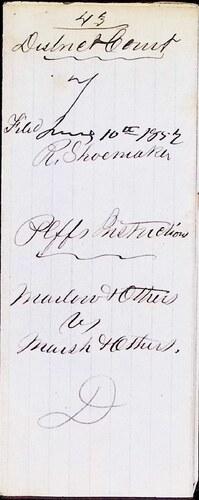 43
District Court
7
Filed Aug 10th 1857
R. Shoemaker
Plffs Instructions
Marlow & Others
vs
Marsh & Others.
D